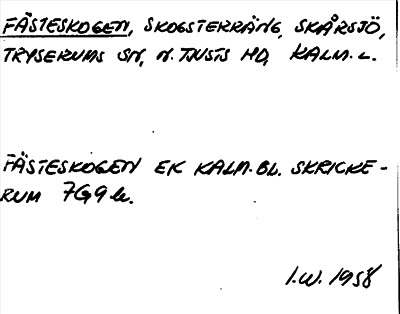 FÄSTESKOGEN, SKOGSTERRÄNG, SKÅRSJÖ,
TRYSERUMS SN, N. TJUSTS HD, KALM. L.
FÄSTESKOGEN EK KALM. BL. SKRICKE-
RUM 7G9h.
I.W. 1958